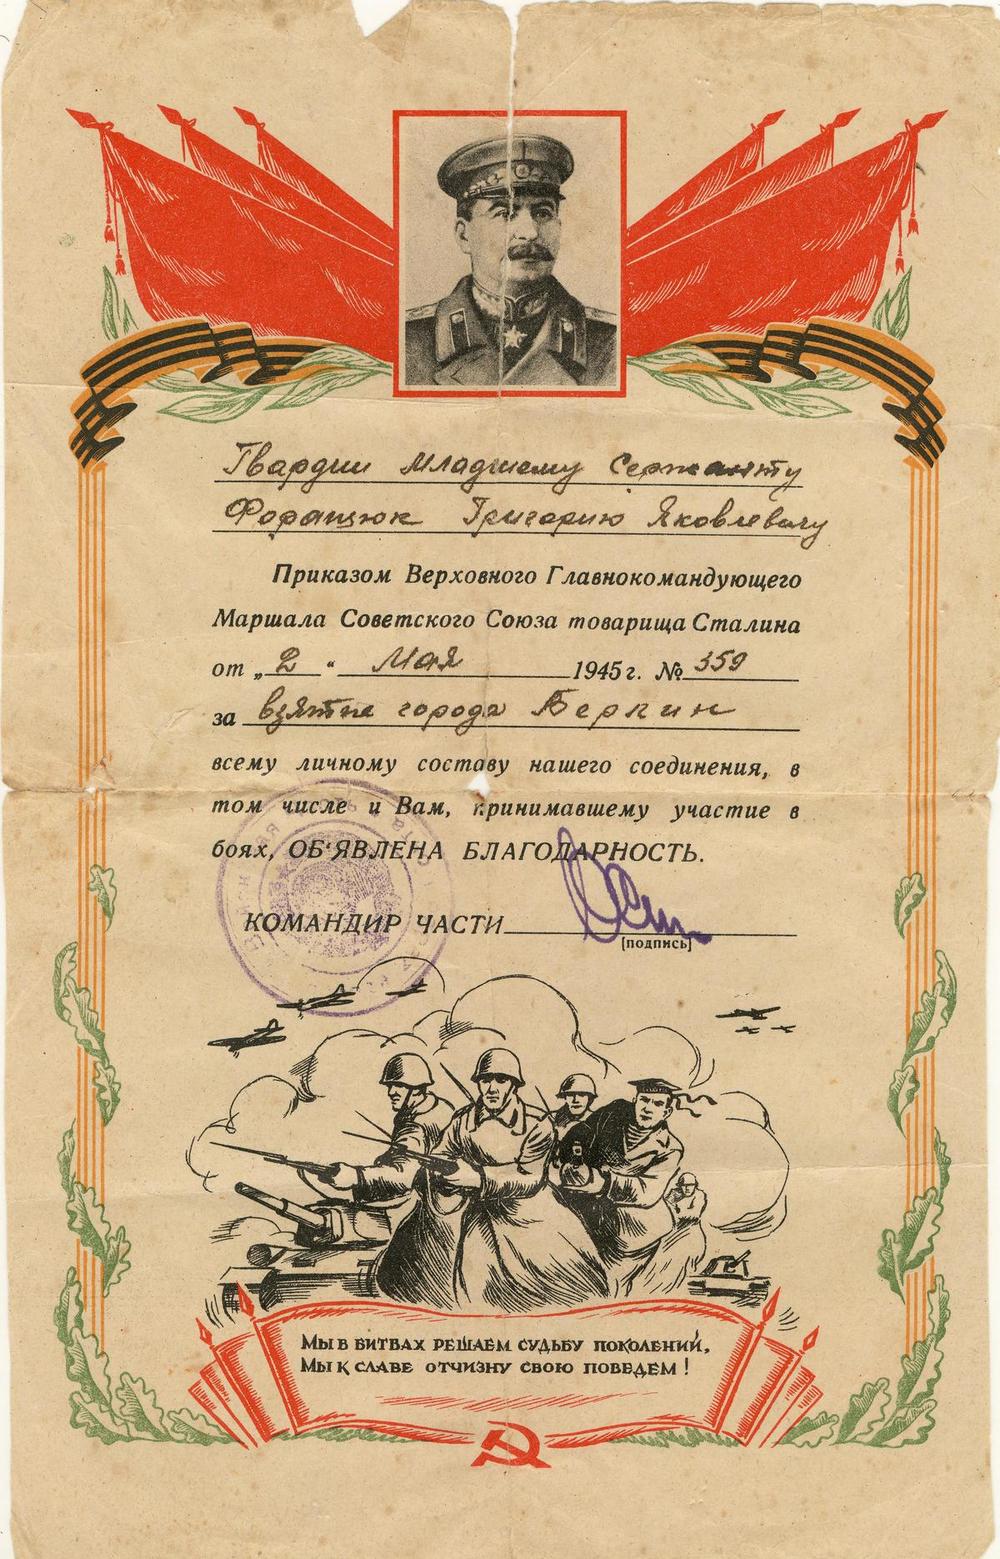 Гвардии Младшему Сержанту
Григорию Яковлевичу
Приказом Верховного Главнокомандующего
Маршала Советского Союза товарища Сталина
от „2“ Мая 1945 г. № 359
за взятие города Берлин
всему личному составу нашего соединения, в
том числе и Вам, принимавшему участие в
боях, ОБ‘ЯВЛЕНА БЛАГОДАРНОСТЬ.
КОМАНДИР ЧАСТИ
[подпись]
Мы в битвах решаем судьбу поколений,
Мы к славе отчизну свою поведем!